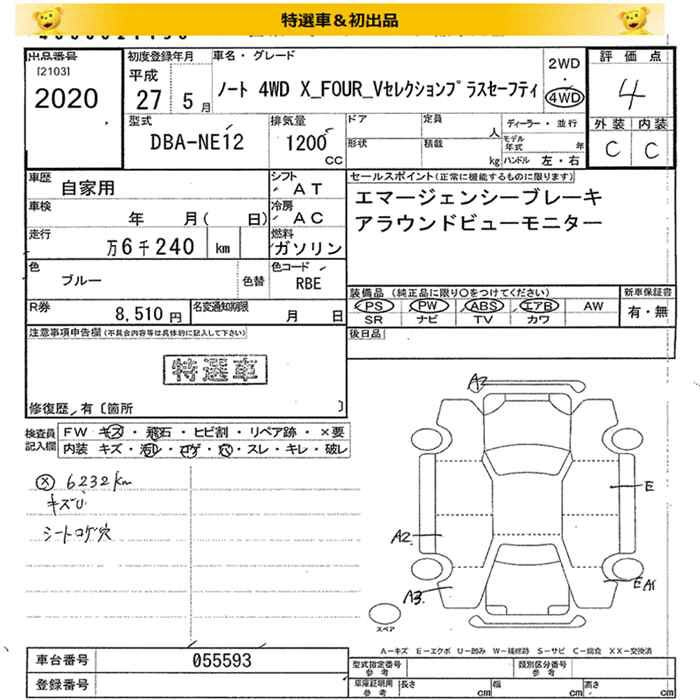 特選車＆初出品
出品番号
[2103]
2020
初度登録年月
平成
27 5月
車名・グレード
ノート 4WD X_FOUR_Vセレクションプラスセーフティ
2WD
・
4WD
評価点
4
外装 内装
C C
型式
DBA-NE12
排気量
1200
CC
ドア
形状
定員
人
積載
kg
ディーラー・並行
モデル年式 年
ハンドル 左・右
車歴
自家用
シフト
AT
車検
年 月( 日)
冷房
AC
走行
万6千240 km
燃料
ガソリン
色
ブルー
色替
色コード
RBE
R券
8,510円
名変通知期限
月 日
セールスポイント(正常に機能するものに限ります)
エマージェンシーブレーキ
アラウンドビューモニター
装備品 (純正品に限り○をつけてください)
PS PW ABS エアB AW
SR ナビ TV カワ
新車保証書
有・無
後日品
注意事項申告欄(不具合内容等は具体的に記入して下さい)
特選車
修復歴,有〔箇所 〕
検査員
記入欄
FW キズ・飛石・ヒビ割・リペア跡・×要
内装 キズ・汚レ・コゲ・穴・スレ・キレ・破レ
ⓧ 6232km
キズU
シートコゲ穴
A2
E
A2
A3
EA1
スペア
A－キズ E－エクボ U－凹み W－補修跡 S－サビ C－腐食 XX－交換済
車台番号
055593
登録番号
型式指定番号
参考
類別区分番号
参考
車庫証明用
参考
長さ cm
幅 cm
高さ cm